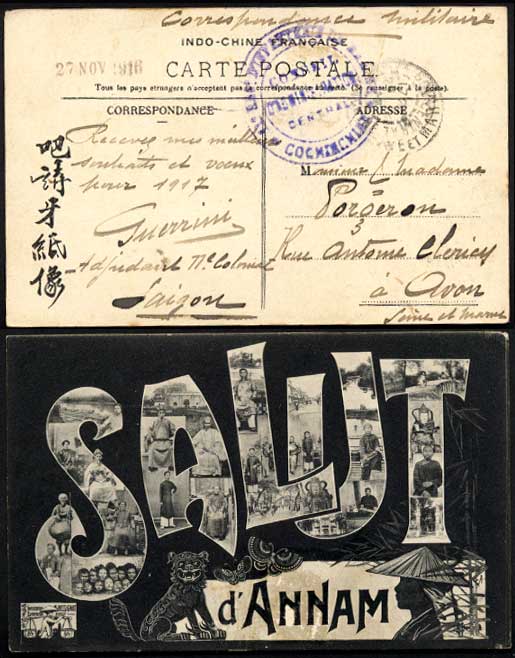 Correspondance Militaire
INDO-CHINE FRANÇAISE
CARTE POSTALE
Tous les pays étrangers n'acceptent pas la correspondance au recto. (Se renseigner à la poste).
27 NOV 1916
CORRESPONDANCE
ADRESSE
CENTRALE
COCHINCHINE
Recevez mes meilleurs
souhaits et vœux
pour 1917
Guerrini
Adjudant
Saigon
Monsieur Madame
Porgeron
3
Rue Antome Clerici
à Avon
Seine et Marne
牙紙像
SALUT
d'ANNAM